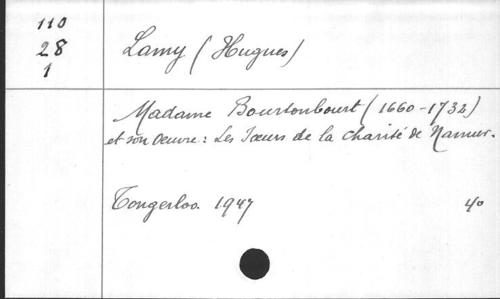 110
28
1
Lamy (Hugues)
Madame Bourtonbourt (1660-1732)
et son Oeuvre: Les Soeurs de la Charité de Namur.
Tongerloo. 1947
4o